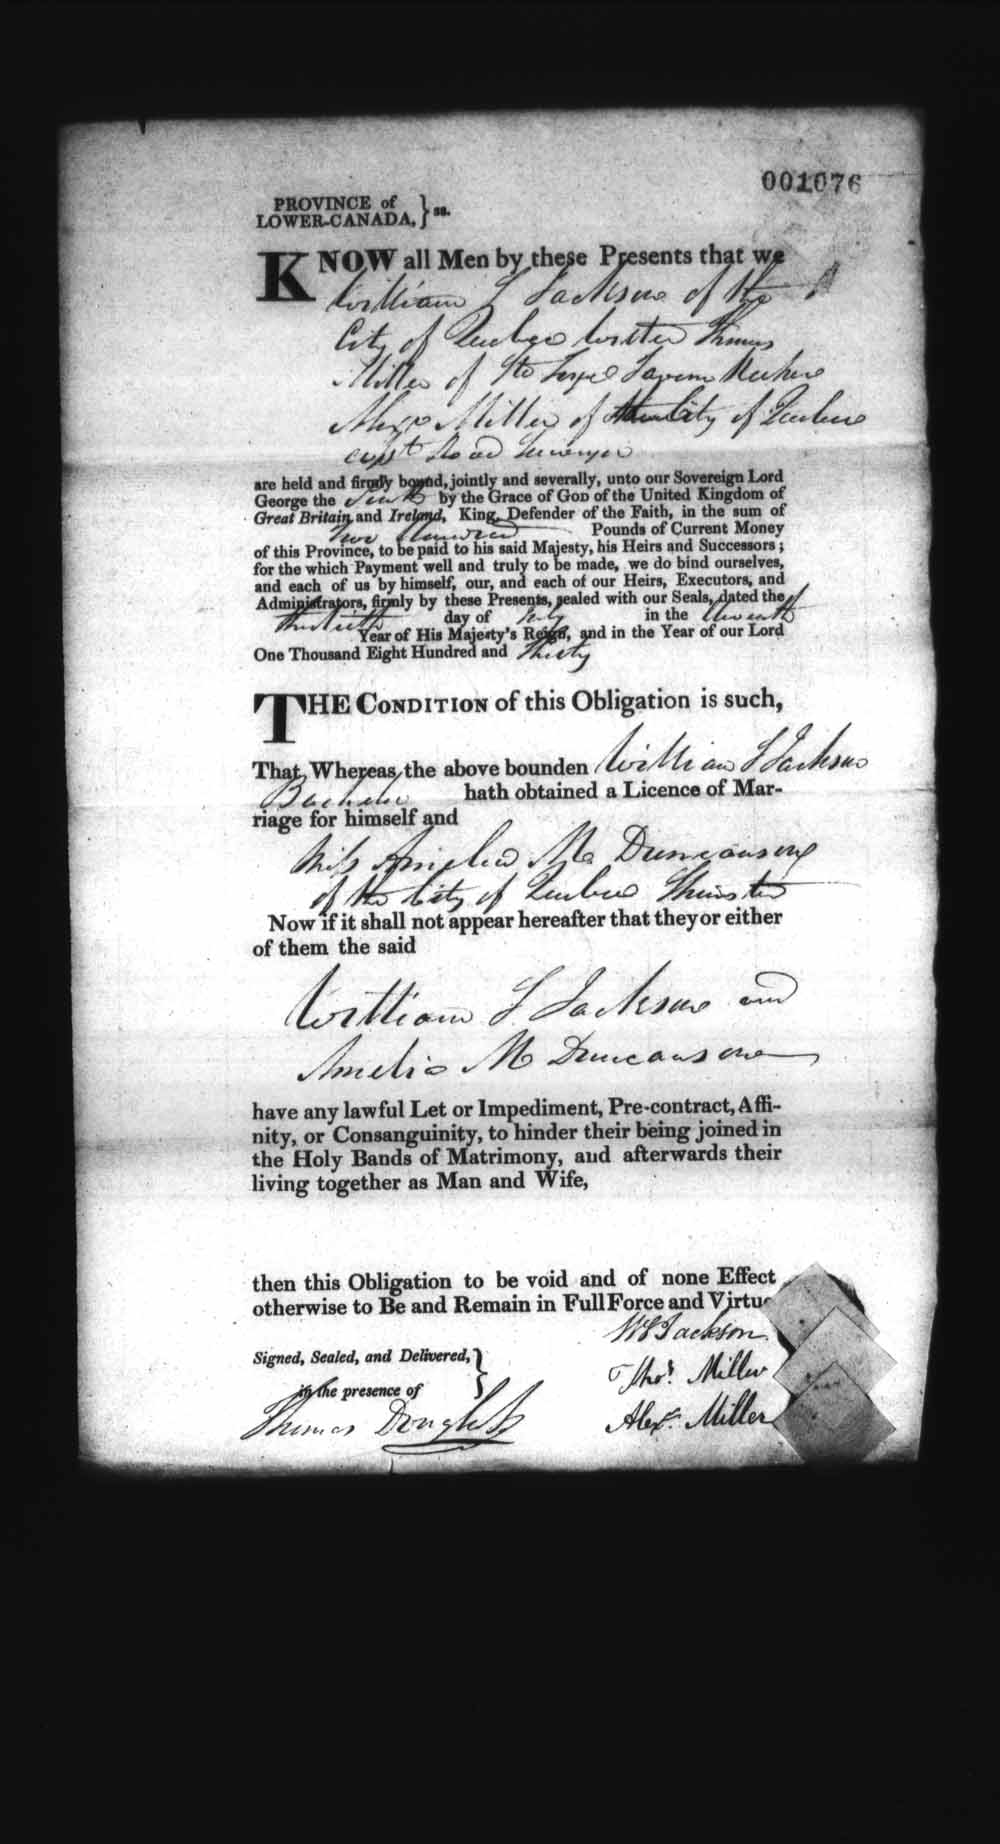 001076
PROVINCE of
LOWER-CANADA, } ss.
KNOW all Men by these Presents that we
William S Jackson of the
City of Quebec Thomas
Miller of Tavern Keeper
Alexr Miller of the City of Quebec
Road Surveyor
are held and firmly bound, jointly and severally, unto our Sovereign Lord
George the Fourth by the Grace of GOD of the United Kingdom of
Great Britain and Ireland, King, Defender of the Faith, in the sum of
Two Hundred Pounds of Current Money
of this Province, to be paid to his said Majesty, his Heirs and Successors;
for the which Payment well and truly to be made, we do bind ourselves,
and each of us by himself, our, and each of our Heirs, Executors, and
Administrators, firmly by these Presents, sealed with our Seals, dated the
thirtieth day of July in the
Year of His Majesty's Reign, and in the Year of our Lord
One Thousand Eight Hundred and Thirty
THE CONDITION of this Obligation is such,
That, Whereas the above bounden William S Jackson
Bachelor hath obtained a Licence of Mar-
riage for himself and
Miss Amelia M Duncanson
of the City of Quebec Spinster
Now if it shall not appear hereafter that they or either
of them the said
William S Jackson and
Amelia M Duncanson
have any lawful Let or Impediment, Pre-contract, Affi-
nity, or Consanguinity, to hinder their being joined in
the Holy Bands of Matrimony, and afterwards their
living together as Man and Wife,
then this Obligation to be void and of none Effect
otherwise to Be and Remain in Full Force and Virtue
WS Jackson
Signed, Sealed, and Delivered, }
Thos. Miller
in the presence of
Alexr. Miller
Thomas Douglass